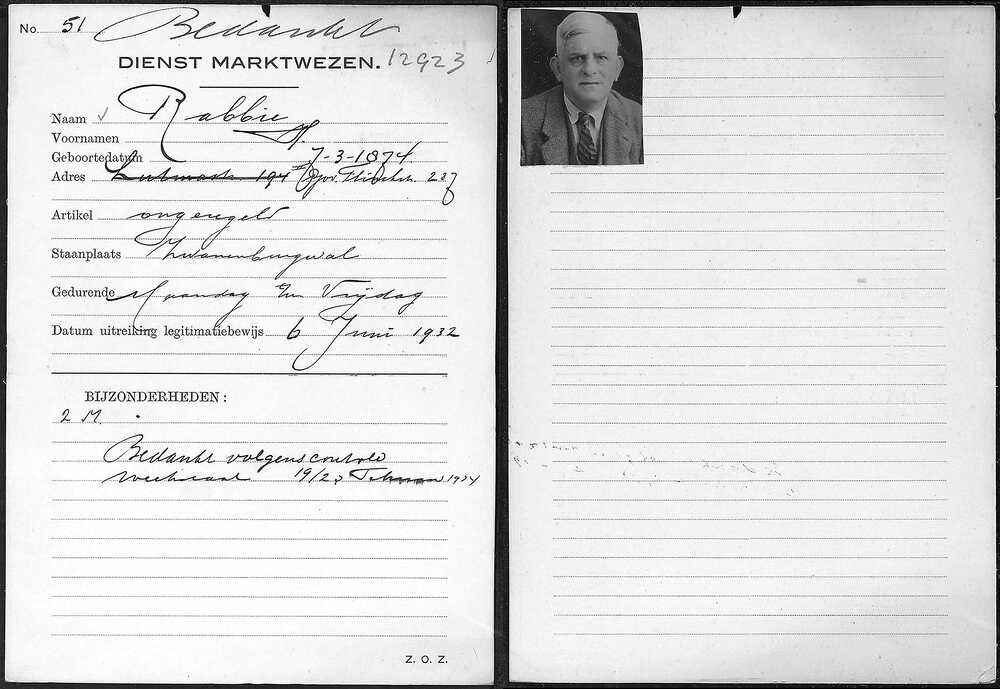 No. 51 Bedankt
DIENST MARKTWEZEN. 12923
Naam Rabbie
Voornamen M.
Geboortedatum 7-3-1874.
Adres Lutmastr. 194 II Gov. Flinckstr. 237
Artikel ongeregeld
Staanplaats Zwanenburgwal
Gedurende Maandag t/m Vrijdag
Datum uitreiking legitimatiebewijs 6 Juni 1932
BIJZONDERHEDEN:
2 M.
Bedankt volgens controle
weekstaat 19/23 Februari 1934
Z. O. Z.